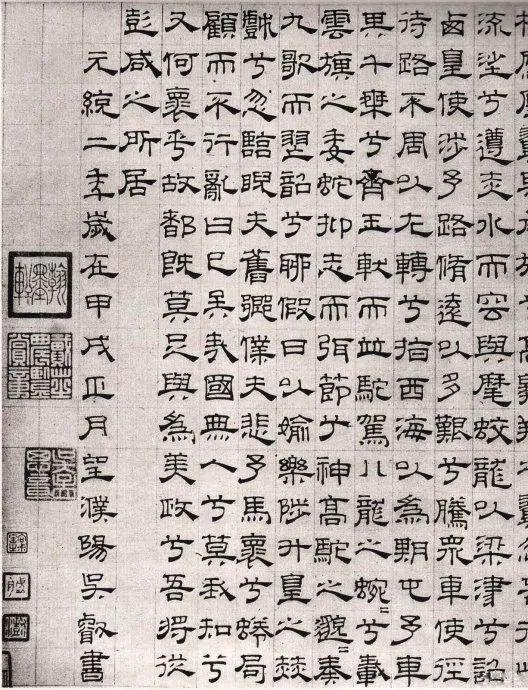 流沙兮遵赤水而容與麾蛟龍以梁津兮詔
西皇使涉予路脩遠以多艱兮騰眾車使徑
待路不周以左轉兮指西海以為期屯予車
其千乘兮齊玉軑而並馳駕八龍之蜿〻兮載
雲旗之委蛇抑志而弭節兮神高馳之邈〻奏
九歌而舞韶兮聊假日以媮樂陟升皇之赫
戲兮忽臨睨夫舊鄉僕夫悲予馬懷兮蜷局
顧而不行亂曰已矣哉國無人兮莫我知兮
又何懷乎故都既莫足與為美政兮吾將從
彭咸之所居
元統二年歲在甲戌正月望濮陽吳叡書